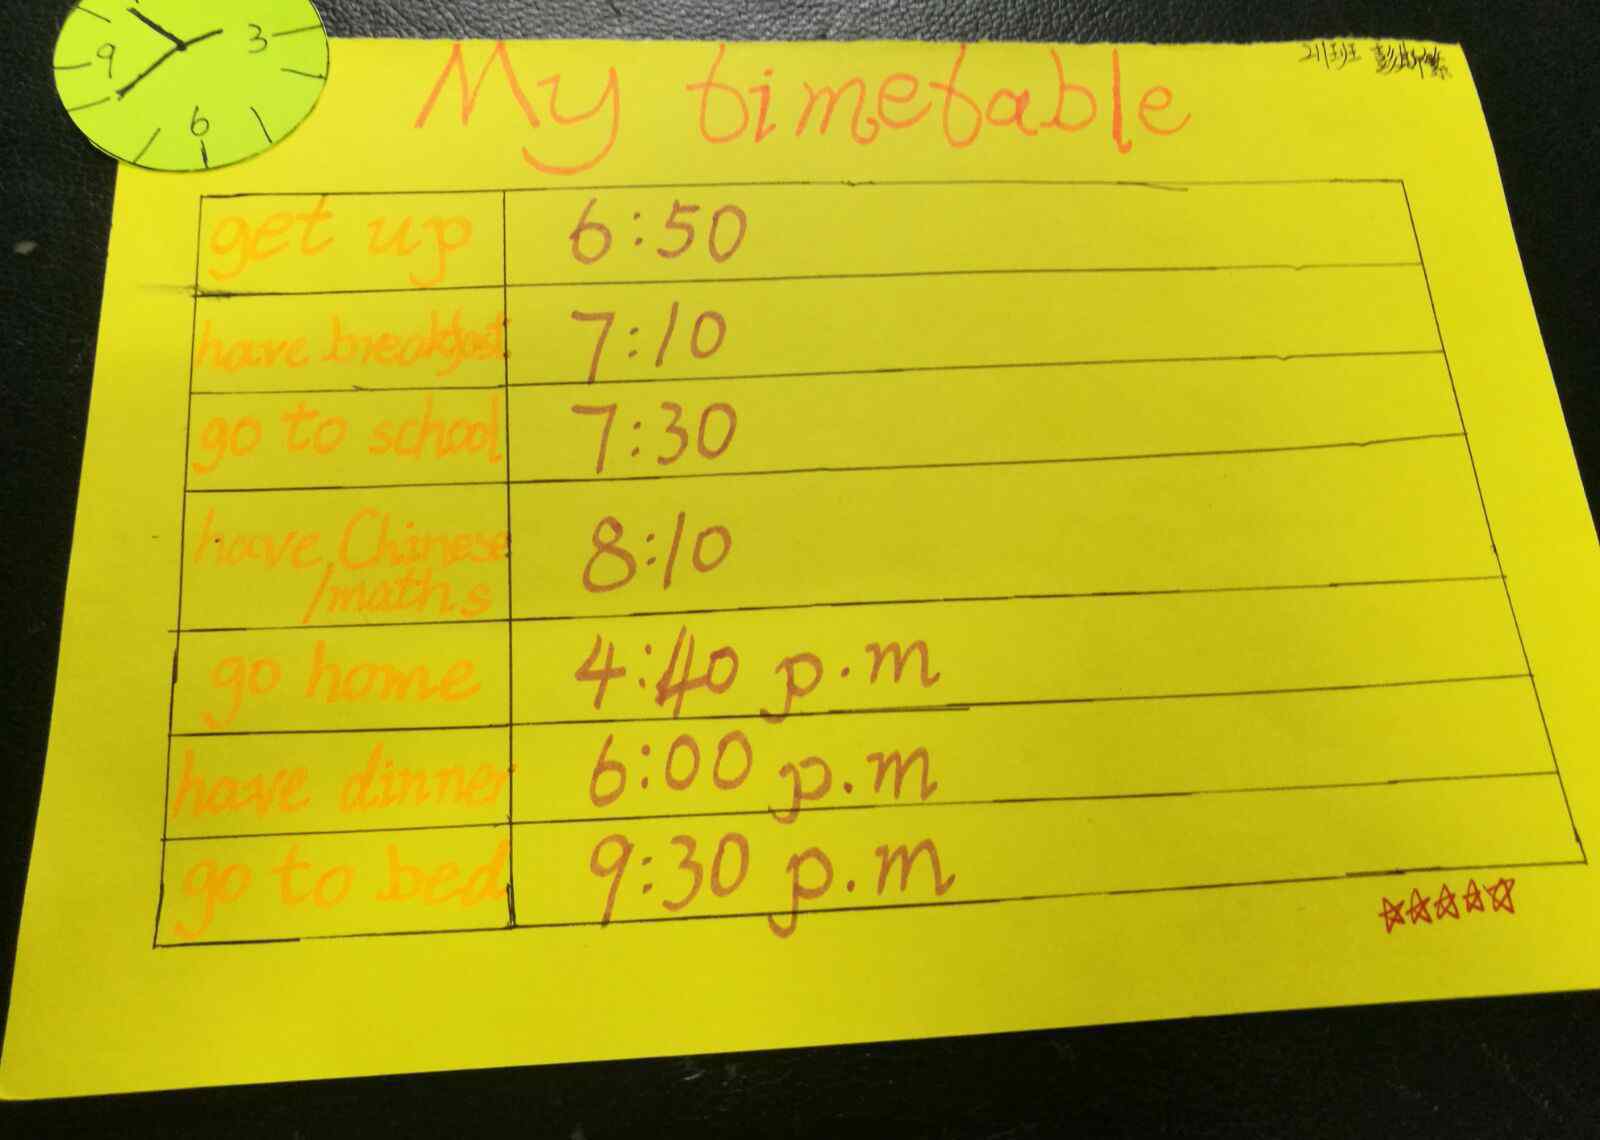 9 3
6
My timetable
get up 6:50
have breakfast 7:10
go to school 7:30
have Chinese 8:10
/maths
go home 4:40 p.m
have dinner 6:00 p.m
go to bed 9:30 p.m